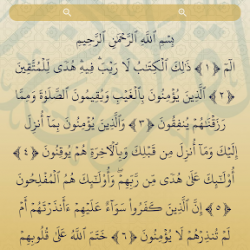 بِسْمِ ٱللَّهِ ٱلرَّحْمَٰنِ ٱلرَّحِيمِ
الٓمٓ ﴿١﴾ ذَٰلِكَ ٱلْكِتَٰبُ لَا رَيْبَ فِيهِ هُدًى لِّلْمُتَّقِينَ
﴿٢﴾ ٱلَّذِينَ يُؤْمِنُونَ بِٱلْغَيْبِ وَيُقِيمُونَ ٱلصَّلَوٰةَ وَمِمَّا
رَزَقْنَٰهُمْ يُنفِقُونَ ﴿٣﴾ وَٱلَّذِينَ يُؤْمِنُونَ بِمَآ أُنزِلَ
إِلَيْكَ وَمَآ أُنزِلَ مِن قَبْلِكَ وَبِٱلْءَاخِرَةِ هُمْ يُوقِنُونَ ﴿٤﴾
أُو۟لَٰٓئِكَ عَلَىٰ هُدًى مِّن رَّبِّهِمْ ۖ وَأُو۟لَٰٓئِكَ هُمُ ٱلْمُفْلِحُونَ
﴿٥﴾ إِنَّ ٱلَّذِينَ كَفَرُوا۟ سَوَآءٌ عَلَيْهِمْ ءَأَنذَرْتَهُمْ أَمْ
لَمْ تُنذِرْهُمْ لَا يُؤْمِنُونَ ﴿٦﴾ خَتَمَ ٱللَّهُ عَلَىٰ قُلُوبِهِمْ